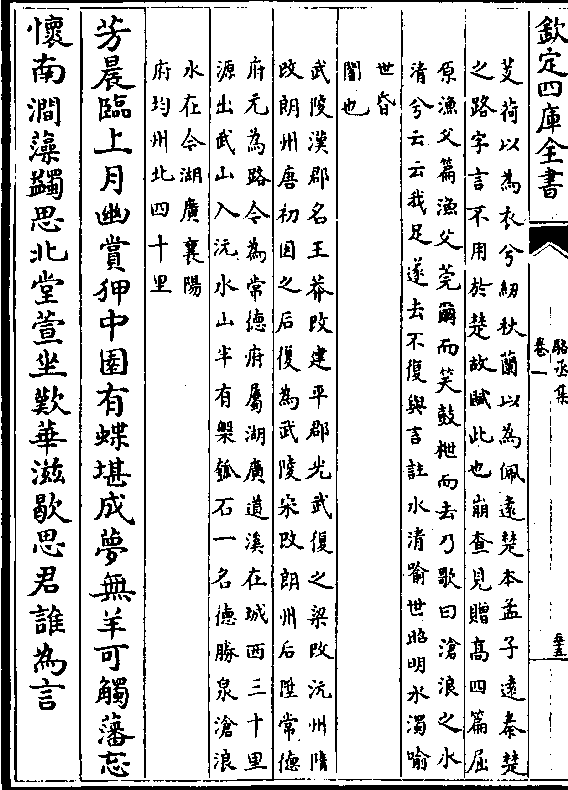 欽定四庫全書
駱丞集
卷一
芰荷以為衣兮紉秋蘭以為佩遠楚本孟子遠秦楚
之路字言不用於楚故賦此也崩查見贈髙四篇屈
原漁父篇漁父莞爾而笑鼓枻而去乃歌曰滄浪之水
清兮云云我足遂去不復與言註水清喻世昭明水濁喻
世昏
闇也
武陵漢郡名王莽改建平郡光武復之梁改沅州隋
改朗州唐初因之后復為武陵宋改朗州后陞常德
府元為路令為常德府屬湖廣道溪在城西三十里
源出武山入沅水山半有槃瓠石一名德勝泉滄浪
水在今湖廣襄陽
府均州北四十里
芳晨臨上月幽賞狎中園有蝶堪成夢無羊可觸藩忘
懷南澗藻蠲思北堂萱坐歎華滋歇思君誰為言